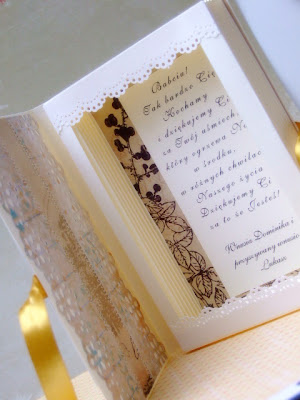 Babciu!
Tak bardzo Cię
Kochamy
i dziękujemy Ci
za Twój uśmiech,
który ogrzewa Nas
w środku,
w różnych chwilach
Naszego życia
Dziękujemy Ci
za to że Jesteś!
Wnusia Dominika i
przyszywany wnusio
Łukasz